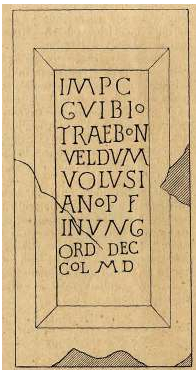 IMP C
C VIBIO
TRAEBON
VELDVM
VOLVSI
ANO P F
INVNG
ORD DEC
COL M D